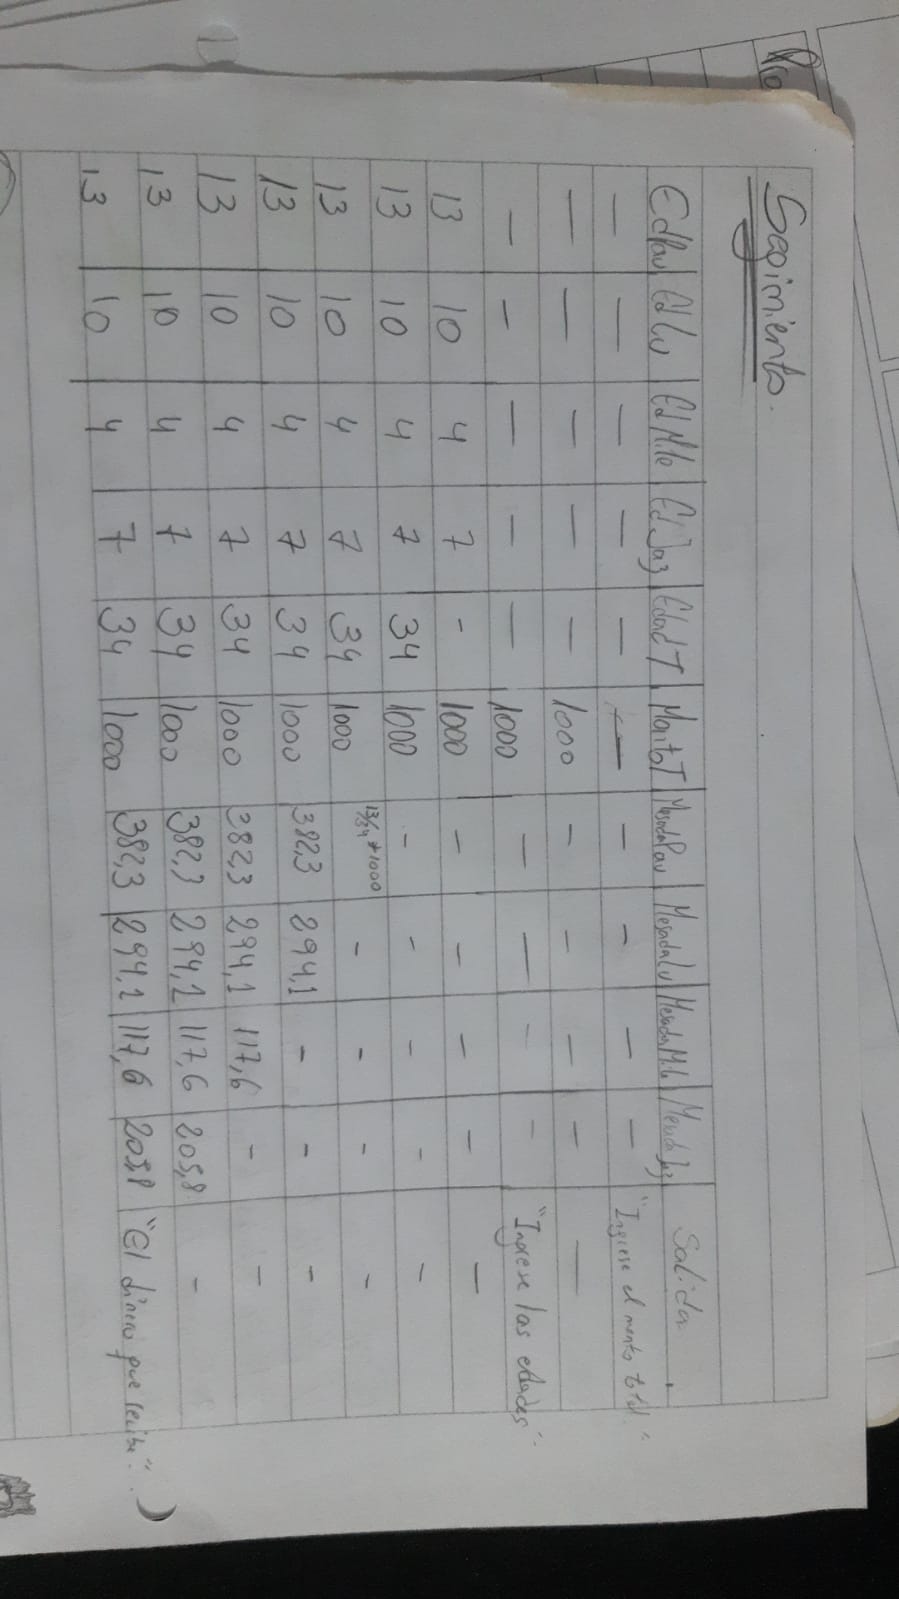 Seguimiento.
EdPau EdLu EdMile EdJaz EdadT MontoT MesadaPau MesadaLu MesadaMile MesadaJaz Salida
— — — — — — — — — — "Ingrese el monto total"
— — — — — 1000 — — — — —
— — — — — 1000 — — — — "Ingrese las edades".
13 10 4 7 - 1000 — — — — —
13 10 4 7 34 1000 - - - - -
13 10 4 7 34 1000 13/34*1000 - - - -
13 10 4 7 34 1000 382,3 294,1 - - -
13 10 4 7 34 1000 382,3 294,1 117,6 - -
13 10 4 7 34 1000 382,3 294,1 117,6 205,8 -
13 10 4 7 34 1000 382,3 294,1 117,6 205,8 "El dinero que recibe".